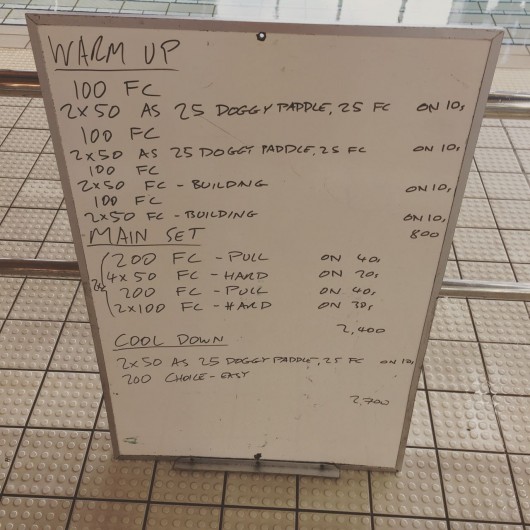 WARM UP
100 FC
2x50 AS 25 DOGGY PADDLE, 25 FC ON 10s
100 FC
2x50 AS 25 DOGGY PADDLE, 25 FC ON 10s
100 FC
2x50 FC - BUILDING ON 10s
100 FC
2x50 FC - BUILDING ON 10s
800
MAIN SET
200 FC - PULL ON 40s
4x50 FC - HARD ON 20s
2x
200 FC - PULL ON 40s
2x100 FC - HARD ON 30s
2,400
COOL DOWN
2x50 AS 25 DOGGY PADDLE, 25 FC ON 10s
200 CHOICE - EASY
2,700